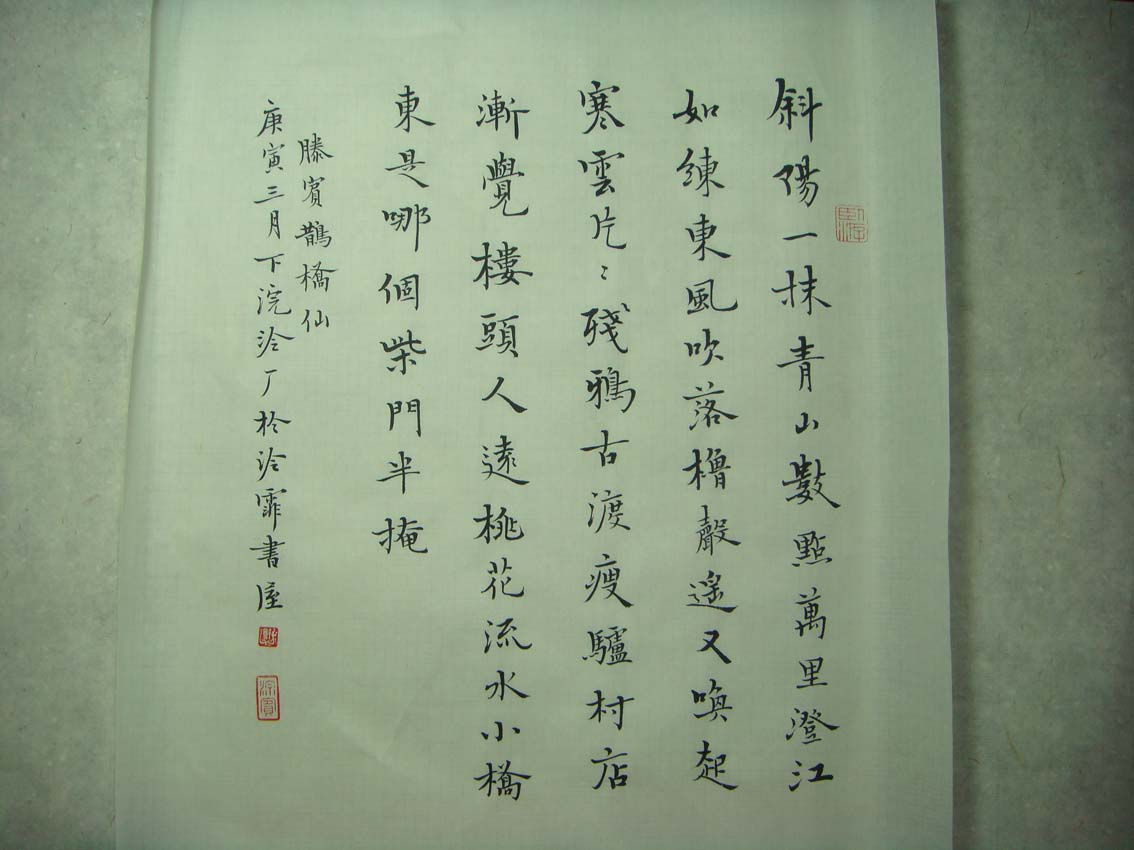 斜陽一抹青山數點萬里澄江
如練東風吹落櫓聲遥又喚起
寒雲片〻殘鴉古渡瘦驢村店
漸覺樓頭人遠桃花流水小橋
東是哪個柴門半掩
滕賓鵲橋仙
庚寅三月下浣泠丁於泠霏書屋